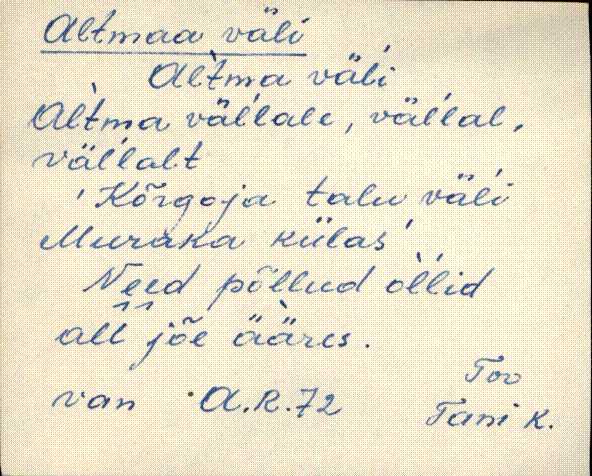 Altmaa väli
Al̀tma väĺi
Al̀tma väĺlale, väĺlal,
väĺlalt
'Kõrgoja talu väĺi
Muraka külas
Need põllud òllid
all jõe ääres.
van A.R.72
Tov
Tami k.